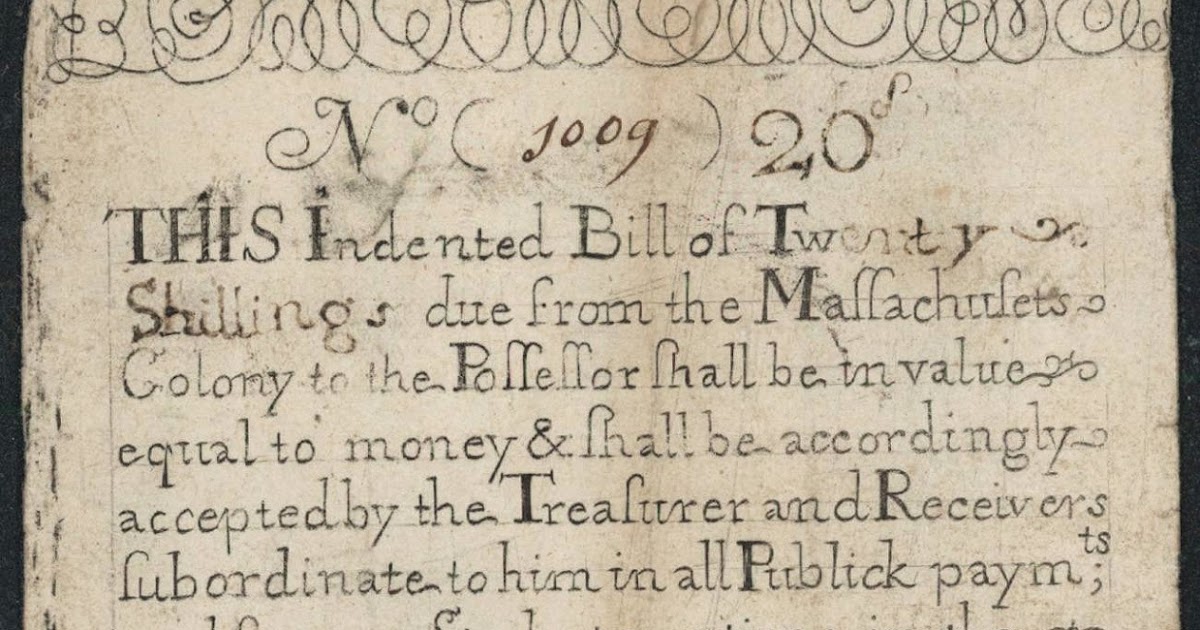 Nº (1009) 20ˢ
THIS Indented Bill of Twenty
Shillings due from the Maſſachuſets
Colony to the Poſſeſſor ſhall be in value
equal to money & ſhall be accordingly
accepted by the Treaſurer and Receivers
ſubordinate to him in all Publick paymᵗˢ;